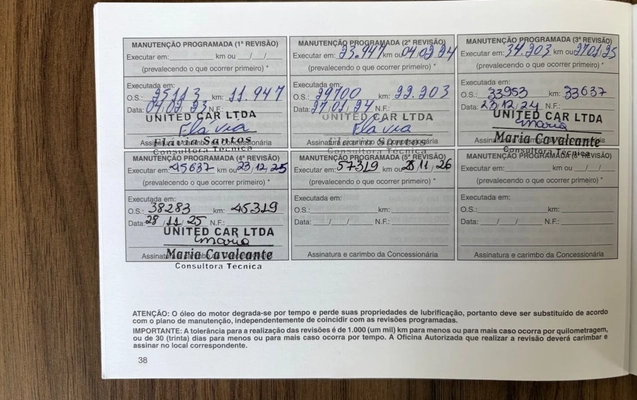 MANUTENÇÃO PROGRAMADA (1ª REVISÃO)
Executar em: km ou / /
(prevalecendo o que ocorrer primeiro) *
Executada em:
O.S.: 25113 km: 11.947
Data: 04.02.23 N.F.
UNITED CAR LTDA
Flavia
Flavia Santos
Consultora Técnica
MANUTENÇÃO PROGRAMADA (2ª REVISÃO)
Executar em: 23.947 km ou 04.02.24
(prevalecendo o que ocorrer primeiro) *
Executada em:
O.S.: 29700 km: 22.203
Data: 27.01.24 N.F.
UNITED CAR LTDA
Flavia
Santos
MANUTENÇÃO PROGRAMADA (3ª REVISÃO)
Executar em: 34.203 km ou 27.01.25
(prevalecendo o que ocorrer primeiro) *
Executada em:
O.S.: 33953 km: 33637
Data: 23.12.24 N.F.
UNITED CAR LTDA
Maria
Maria Cavalcante
Consultora Técnica
MANUTENÇÃO PROGRAMADA (4ª REVISÃO)
Executar em: 45637 km ou 23.12.25
(prevalecendo o que ocorrer primeiro) *
Executada em:
O.S.: 38283 km: 45319
Data: 28/11/25 N.F.:
UNITED CAR LTDA
Maria
Maria Cavalcante
Consultora Técnica
MANUTENÇÃO PROGRAMADA (5ª REVISÃO)
Executar em: 57319 km ou 28 11 26
(prevalecendo o que ocorrer primeiro) *
Executada em:
O.S.: km:
Data: / / N.F.:
Assinatura e carimbo da Concessionária
MANUTENÇÃO PROGRAMADA (6ª REVISÃO)
Executar em: km ou / /
(prevalecendo o que ocorrer primeiro) *
Executada em:
O.S.: km:
Data: / / N.F.:
Assinatura e carimbo da Concessionária
ATENÇÃO: O óleo do motor degrada-se por tempo e perde suas propriedades de lubrificação, portanto deve ser substituído de acordo
com o plano de manutenção, independentemente de coincidir com as revisões programadas.
IMPORTANTE: A tolerância para a realização das revisões é de 1.000 (um mil) km para menos ou para mais caso ocorra por quilometragem,
ou de 30 (trinta) dias para menos ou para mais caso ocorra por tempo. A Oficina Autorizada que realizar a revisão deverá carimbar e
assinar no local correspondente.
38